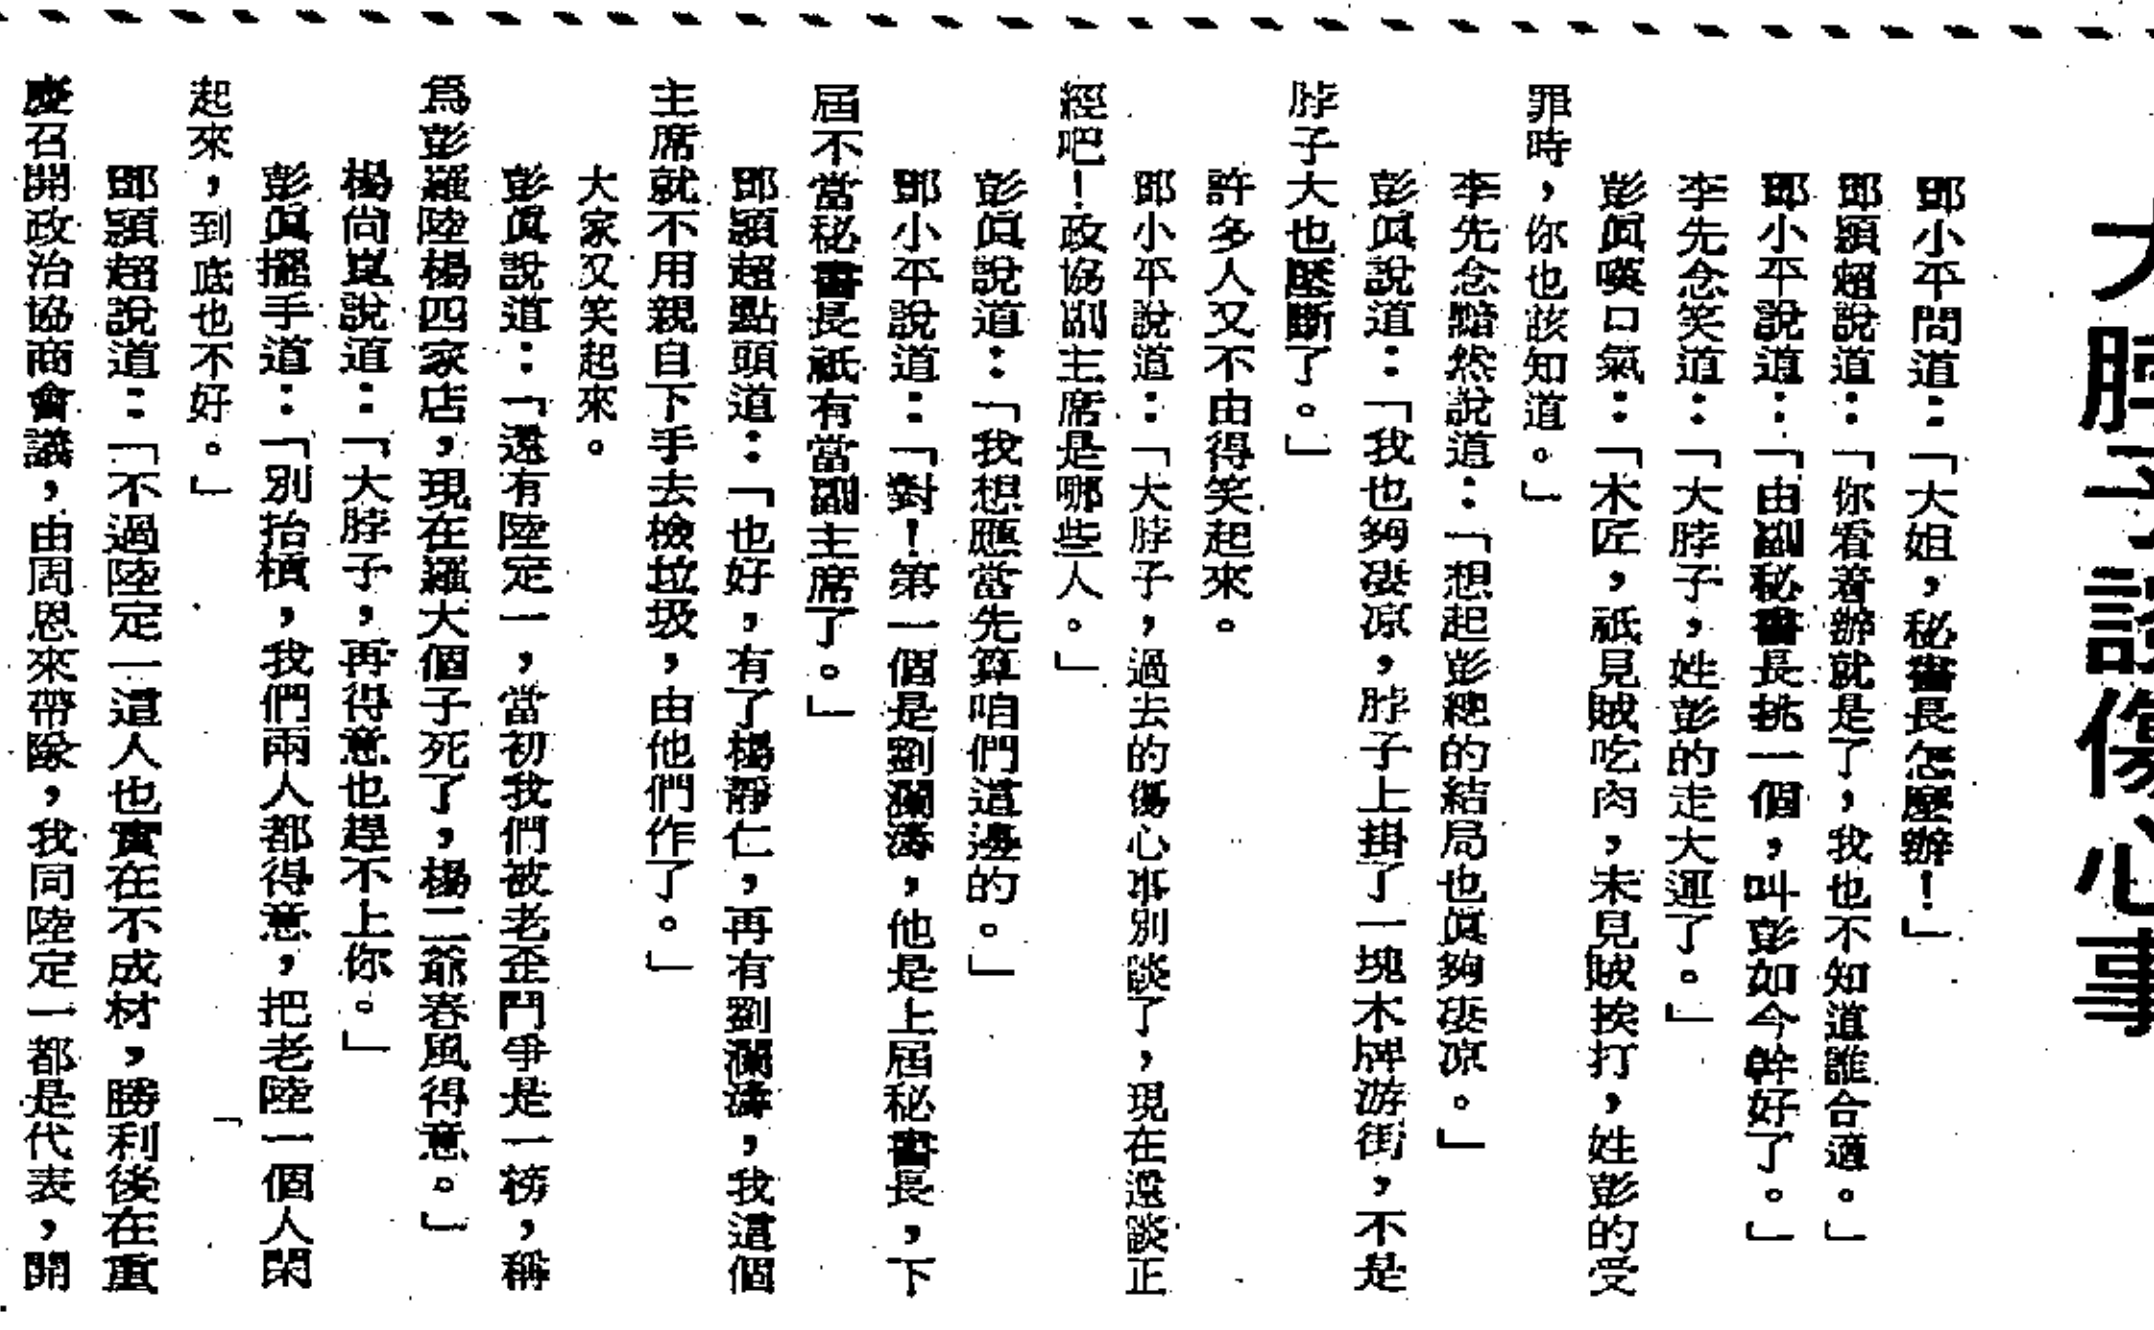 大脖子說傷心事
鄧小平問道：「大姐，秘書長怎麼辦！」
鄧穎超說道：「你看着辦就是了，我也不知道誰合適。」
鄧小平說道：「由副秘書長挑一個，叫彭如今幹好了。」
李先念笑道：「大脖子，姓彭的走大運了。」
彭眞嘆口氣：「木匠，祇見賊吃肉，未見賊挨打，姓彭的受
罪時，你也該知道。」
李先念黯然說道：「想起彭總的結局也眞夠凄凉。」
彭眞說道：「我也夠凄凉，脖子上掛了一塊木牌游街，不是
脖子大也壓斷了。」
許多人又不由得笑起來。
鄧小平說道：「大脖子，過去的傷心事別談了，現在還談正
經吧！政協副主席是哪些人。」
彭眞說道：「我想應當先算咱們這邊的。」
鄧小平說道：「對！第一個是劉瀾濤，他是上屆秘書長，下
屆不當秘書長祇有當副主席了。」
鄧穎超點頭道：「也好，有了楊靜仁，再有劉瀾濤，我這個
主席就不用親自下手去檢垃圾，由他們作了。」
大家又笑起來。
彭眞說道：「還有陸定一，當初我們被老歪鬥爭是一榜，稱
爲彭羅陸楊四家店，現在羅大個子死了，楊二爺春風得意。」
楊尚崑說道：「大脖子，再得意也趕不上你。」
彭眞擺手道：「別抬槓，我們兩人都得意，把老陸一個人閑
起來，到底也不好。」
鄧穎超說道：「不過陸定一這人也實在不成材，勝利後在重
慶召開政治協商會議，由周恩來帶隊，我同陸定一都是代表，開